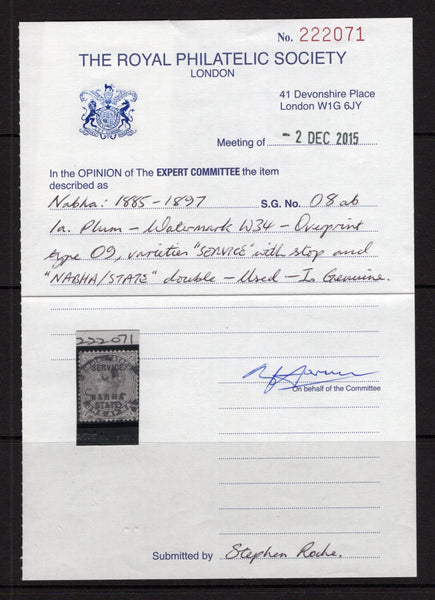 No. 222071
THE ROYAL PHILATELIC SOCIETY
LONDON
41 Devonshire Place
London W1G 6JY
Meeting of - 2 DEC 2015
In the OPINION of The EXPERT COMMITTEE the item
described as
Nabha: 1885-1897 S.G. No. O8ab
1a. Plum - Watermark W34 - Overprint
type O9, varieties "SERVICE" with stop and
"NABHA/STATE" double - Used - Is Genuine.
222071
SERVICE
NABHA
STATE
On behalf of the Committee
Submitted by Stephen Roche.